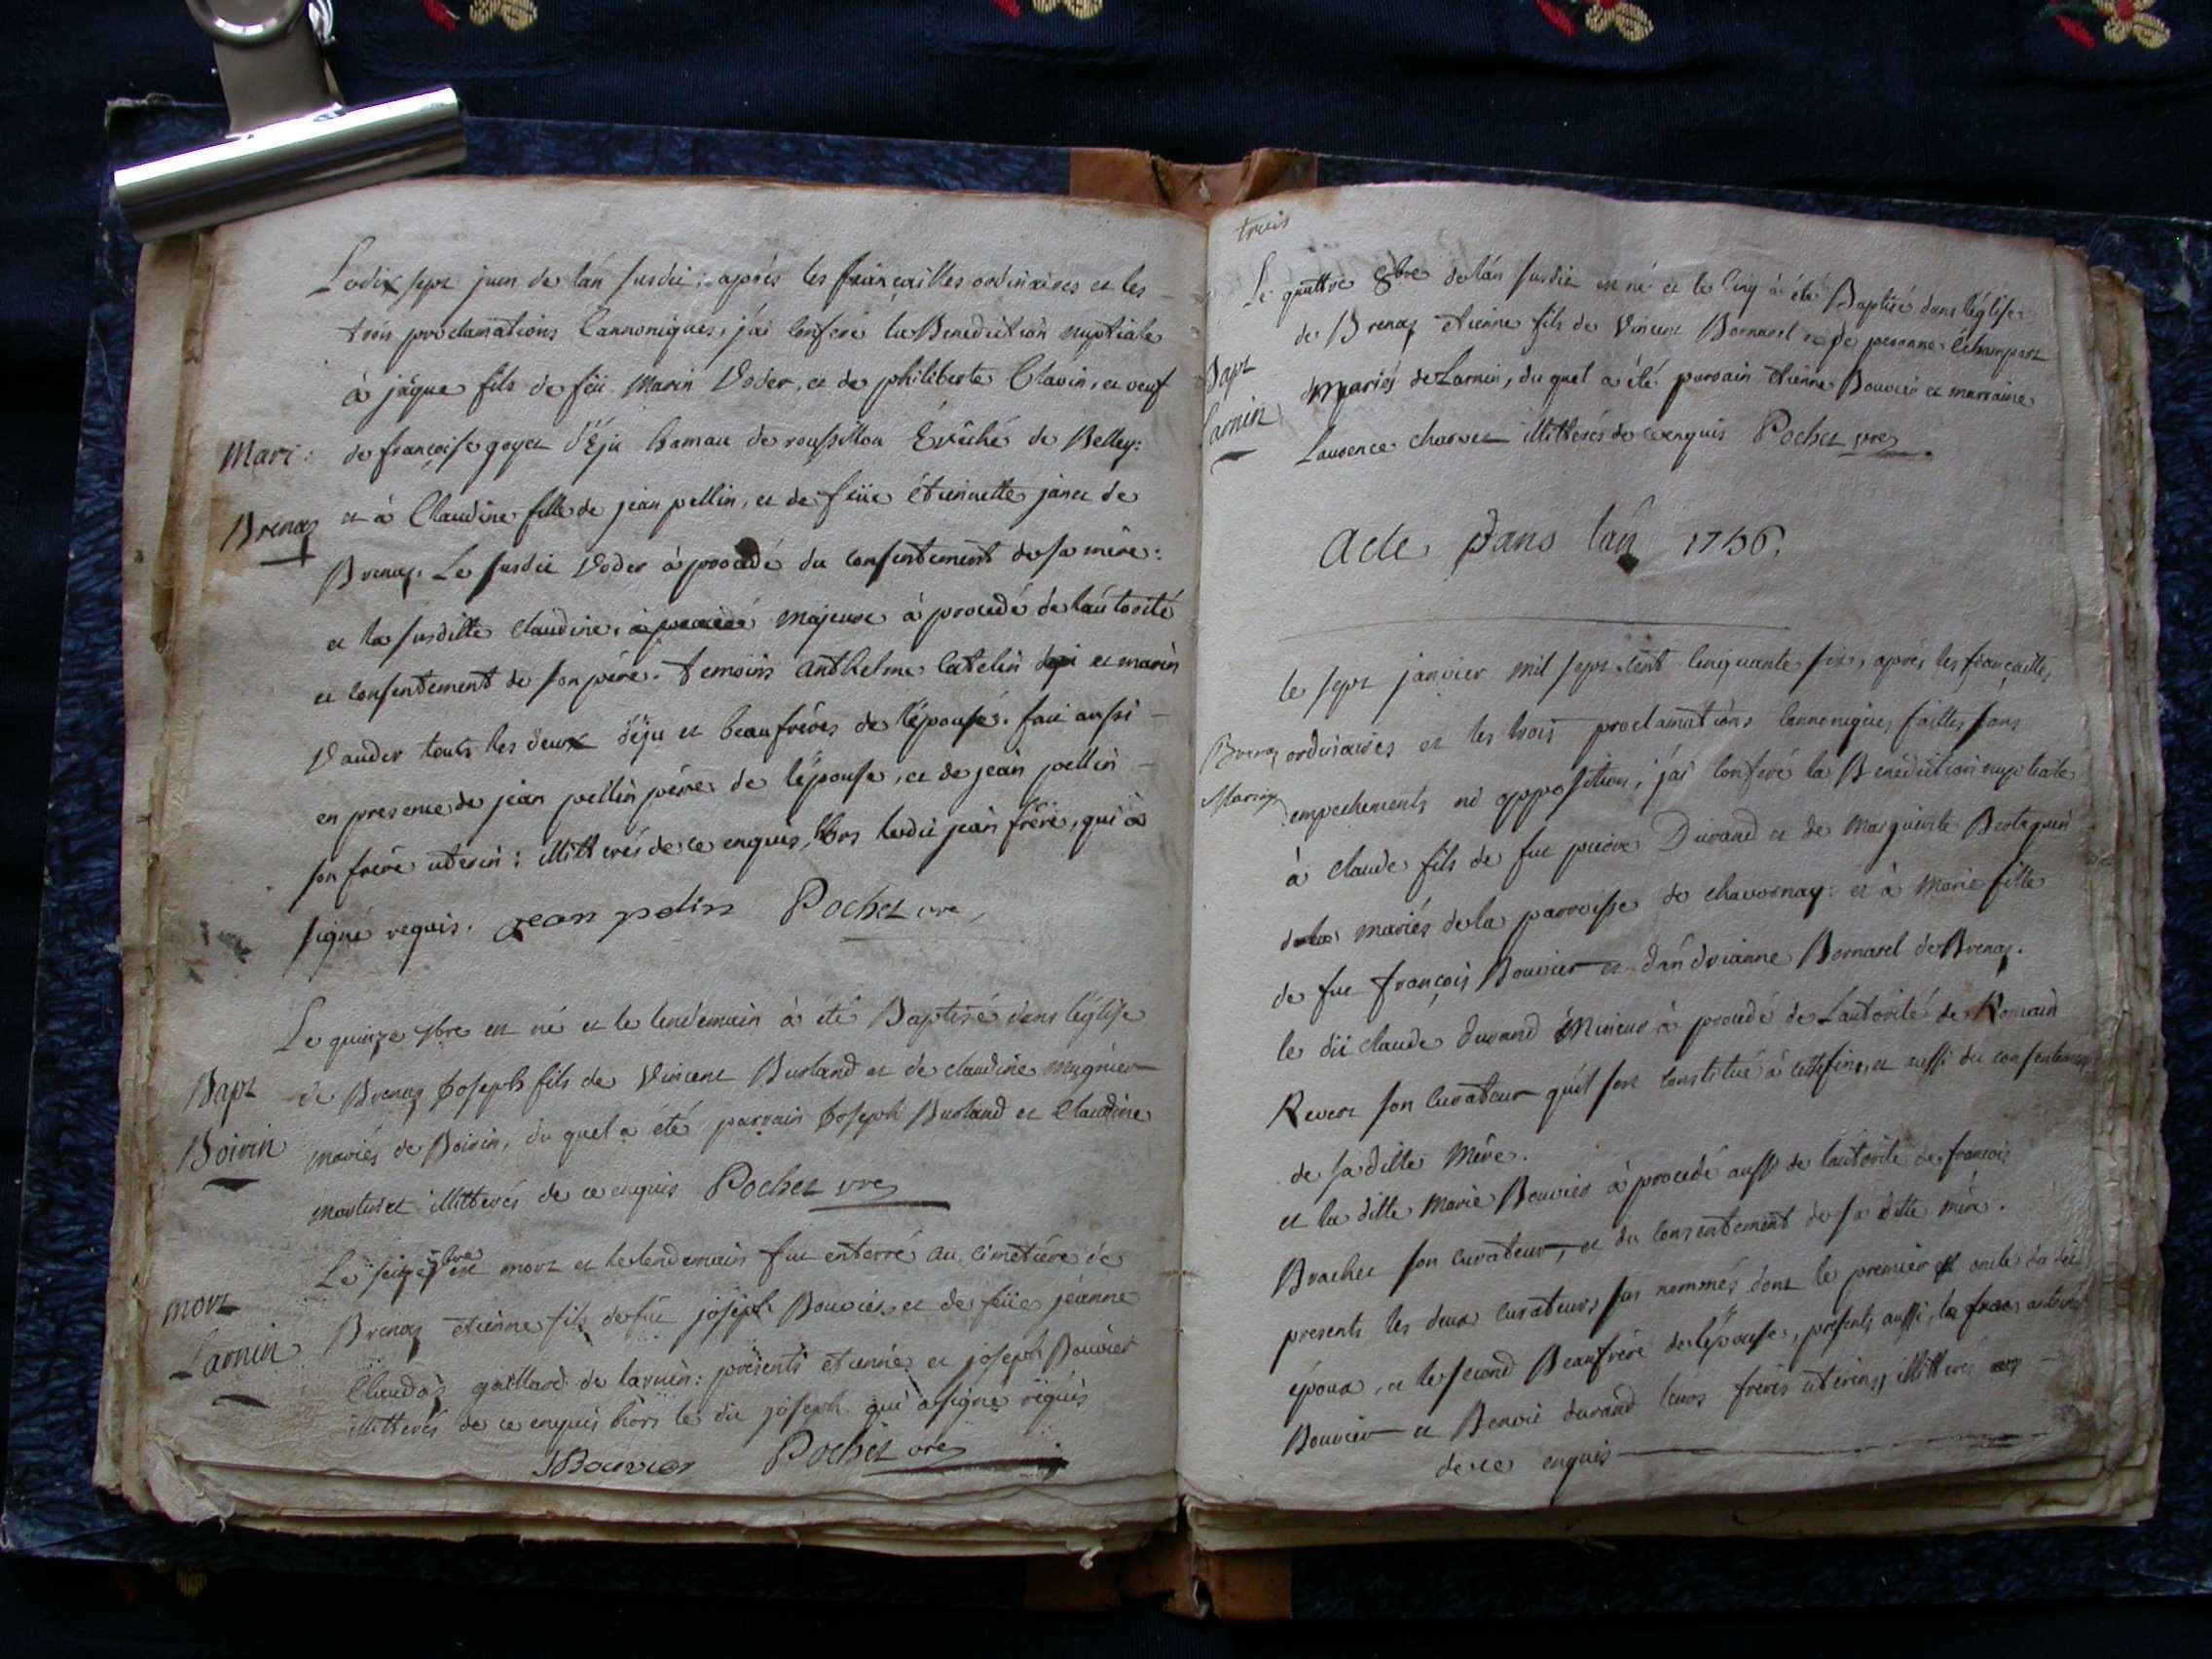 Le dix sept juin de lán susdit; aprés les fiançailles ordinaires et les
trois proclamations Cannoniques, j'ai conferé la Benediction nuptiale
à jâque fils de feu Marin Voder, et de philiberte Clavin, et veuf
de françoise goyet d'Eju hamau de roussillon Evêché de Belley:
Mari:
et à Claudine fille de jean pellin, et de feüe étiennette janet de
Brenaz
Brenaz. Le susdit Voder à procedé du consentement de sa mére:
et la susditte Claudine, majeure à procedé de láutorité
et consentement de son pére. temoins Anthelme Catelin et marin
Vauder touts les deux déju et beaufréres de l'épouse. fait aussi
en presence de jean pellin pére de lépouse, et de jean pellin
son frére uterin; illitterés de ce enquis, hors ledit jean frére, qui à
signé requis. jean pelin Pochet vre
Le quinze 7bre est né et le lendemain à été Baptisé dans léglise
de Brenaz Joseph fils de Vincent Burland et de claudine mugnier
Bapt
Boirin
mariés de Boirin, du quel a été parrain Joseph Burland et Claudine
martinet illitterés de ce enquis Pochet vre
Le seize 7bre est mort et le lendemain fut enterré au cimetiére de
mort
Brenaz etienne fils de feu joseph Bouvier et de feüe jeanne
Larnin
Claudas gaillard de larnin: présents etienne et joseph Bouvier
illitterés de ce enquis hors le dit joseph qui à signé réquis
JBouvier Pochet vre
trois
Le quattre 8bre de lán susdit est né et le cinq à été Baptisé dans léglise
de Brenaz etienne fils de Vincent Bornarel et de peronne Échampart
Bapt
mariés de Larnin, du quel a été parrain etienne Bouvier et marraine
Larnin
Laurence charvet illitterés de ce enquis Pochet vre
Acte Dans lán 1756.
le sept janvier mil sept cent cinquante six, aprés les fiançailles
Brenaz
ordinaires et les trois proclamations cannoniques faittes sans
Mariage
empechements ni opposition; j'ai conferé la Benediction nuptiale
à Claude fils de feu pierre Durand et de Marguerite Berteguin
mariés de la parroisse de chavornay: et à Marie fille
de feu françois Bouvier et dándrianne Bornarel de Brenaz.
le dit claude durand Mineur à procedé de Lautorité de Romain
Revert son curateur qu'il sest constitué à cette fin, et aussi du consentement
de sa ditte Mére.
et la ditte Marie Bouvier à procedé aussi de láutorité de françois
Brachet son curateur, et du consentement de sa ditte mére.
presents les deux curateurs sus nommés dont le premier est oncle du dit
époux, et le second Beaufrére de lépouse, presents aussi,
Bouvier et Benoit durand leurs fréres uterins, illitterés
de ce enquis